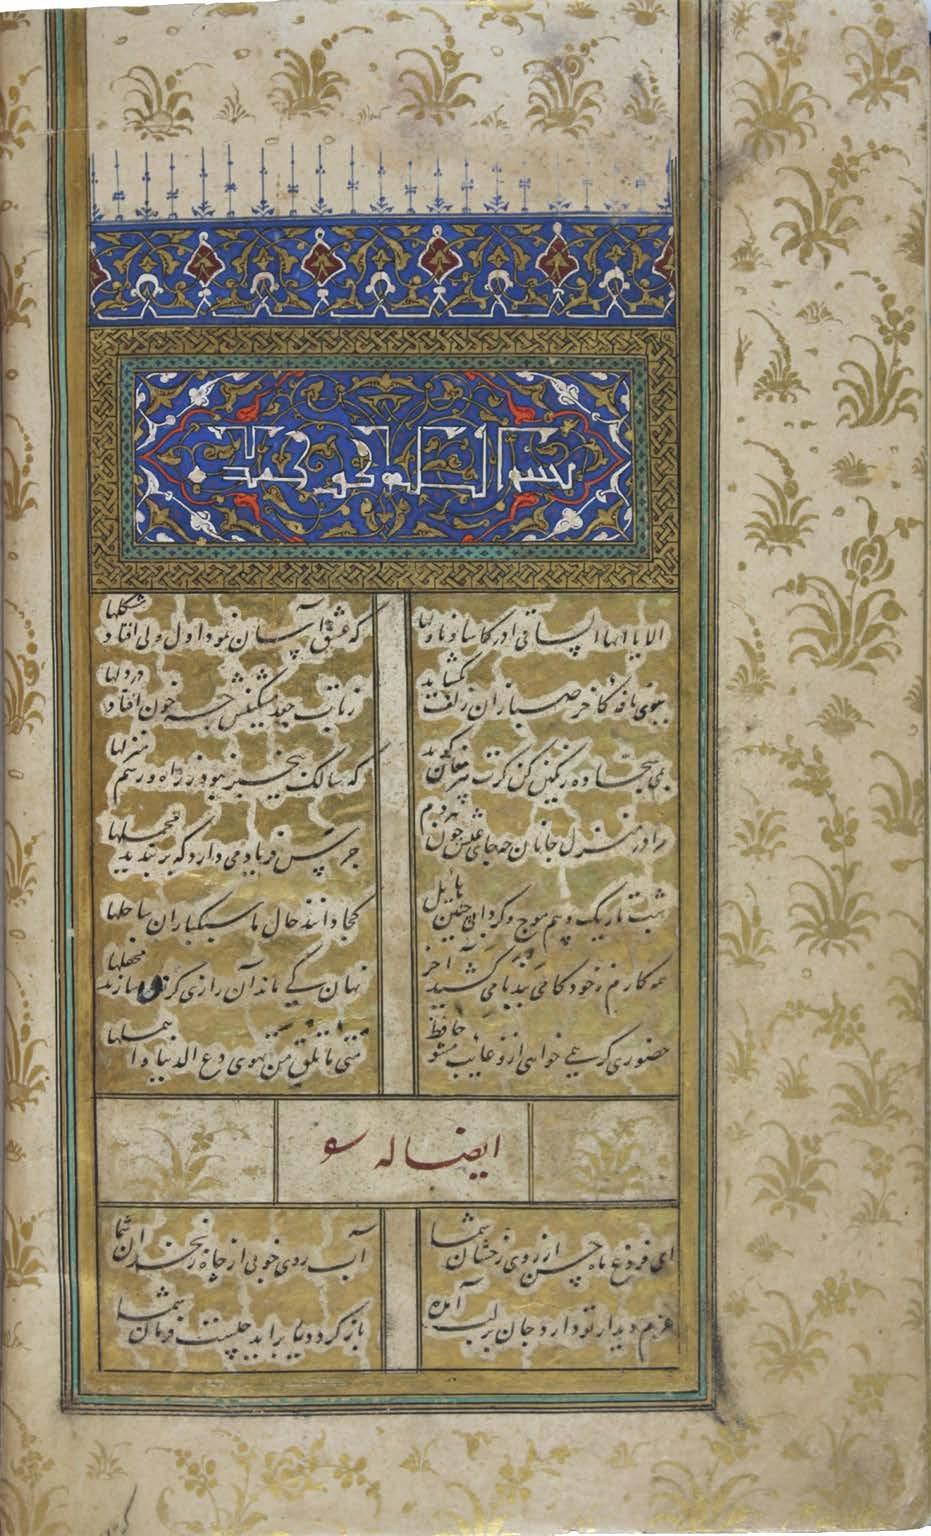 بسم الله الرحمن الرحیم
الا یا ایها الساقی ادر کاسا و ناولها که عشق آسان نمود اول ولی افتاد مشکلها
ببوی نافهٔ کاخر صبا زان زلف بگشاید زتاب جعد مشکینش چه خون افتاد در دلها
بمی سجاده رنگین کن گرت پیر مغان گوید که سالک بیخبر نبود ز راه و رسم منزلها
مرا در منزل جانان چه جای عیش چون هر دم جرس فریاد می دارد که بربندید محملها
شب تاریک و بیم موج و گردابی چنین هایل کجا دانند حال ما سبکباران ساحلها
همه کارم ز خود کامی ببدنامی کشید آخر نهان کی ماند آن رازی کزو سازند محفلها
حضوری گر همی خواهی ازو غایب مشو حافظ متی ما تلق من تهوی دع الدنیا و اهملها
ایضا له
ای فروغ ماه حسن از روی رخشان شما آب روی خوبی از چاه زنخدان شما
عزم دیدار تو دارد جان بر لب آمده باز گردد یا براید چیست فرمان شما